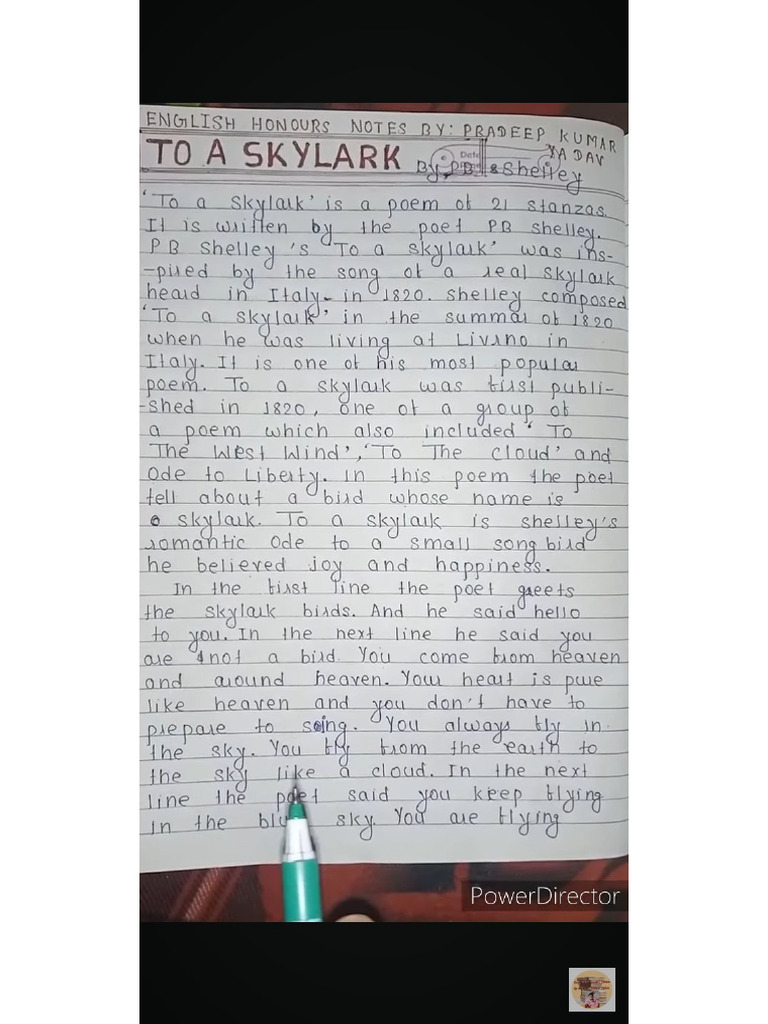 ENGLISH HONOURS NOTES BY: PRADEEP KUMAR YADAV
TO A SKYLARK By, PB Shelley
Date
'To a Skylark' is a poem of 21 stanzas.
It is written by the poet PB Shelley.
PB Shelley's 'To a skylark' was ins-
-pired by the song of a real skylark
heard in Italy in 1820. Shelley composed
'To a skylark' in the summar of 1820
when he was living at Livrno in
Italy. It is one of his most popular
poem. To a skylark was first publi-
-shed in 1820, one of a group of
a poem which also included 'To
The West Wind', 'To The Cloud' and
Ode to Liberty. In this poem the poet
tell about a bird whose name is
skylark. To a skylark is shelley's
romantic Ode to a small song bird
he believed joy and happiness.
In the first line the poet greets
the skylark birds. And he said hello
to you. In the next line he said you
are not a bird. You come from heaven
and around heaven. Your heart is pure
like heaven and you don't have to
prepare to sing. You always fly in
the sky. You fly from the earth to
the sky like a cloud. In the next
line the poet said you keep flying
in the blue sky. You are flying
PowerDirector